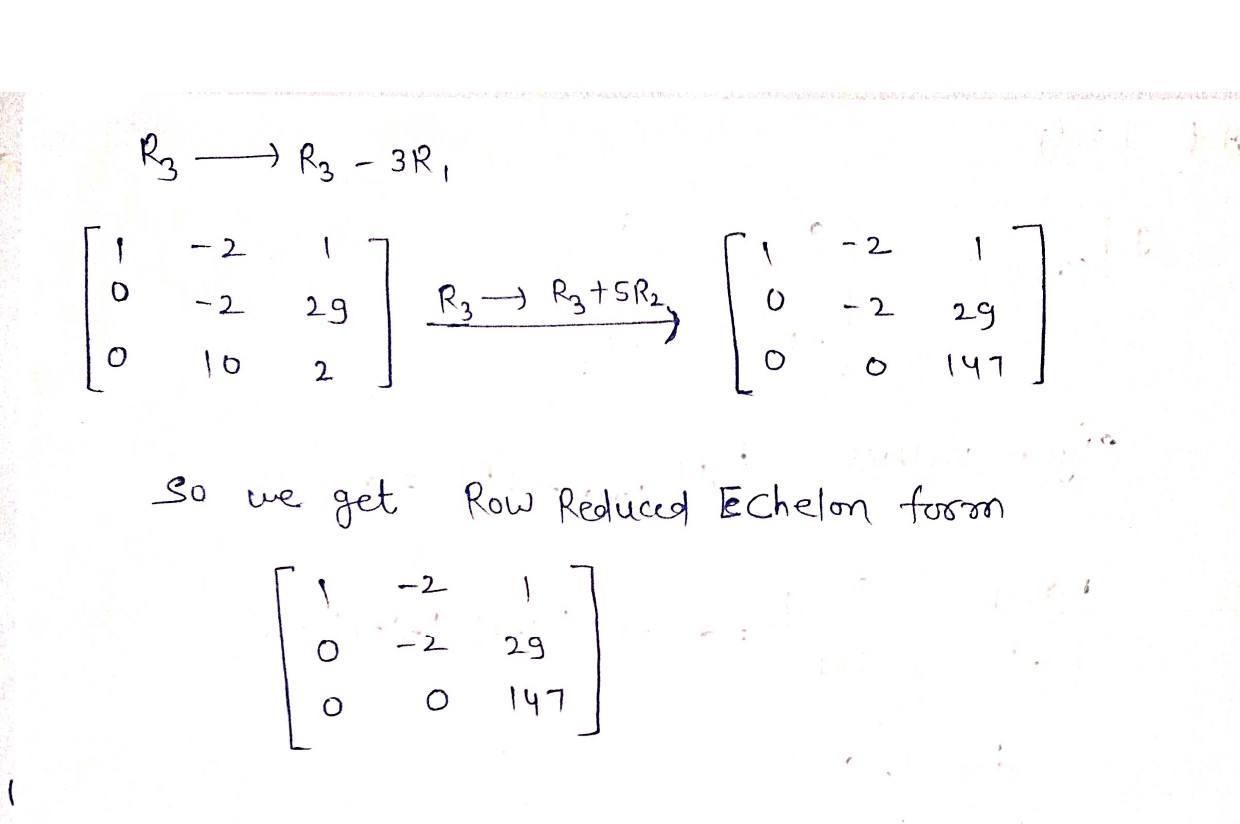 R₃ → R₃ - 3R₁
[ 1 -2 1 ] [ 1 -2 1 ]
[ 0 -2 29 ] R₃ → R₃+5R₂ [ 0 -2 29 ]
[ 0 10 2 ] [ 0 0 147 ]
So we get Row Reduced Echelon form
[ 1 -2 1 ]
[ 0 -2 29 ]
[ 0 0 147 ]